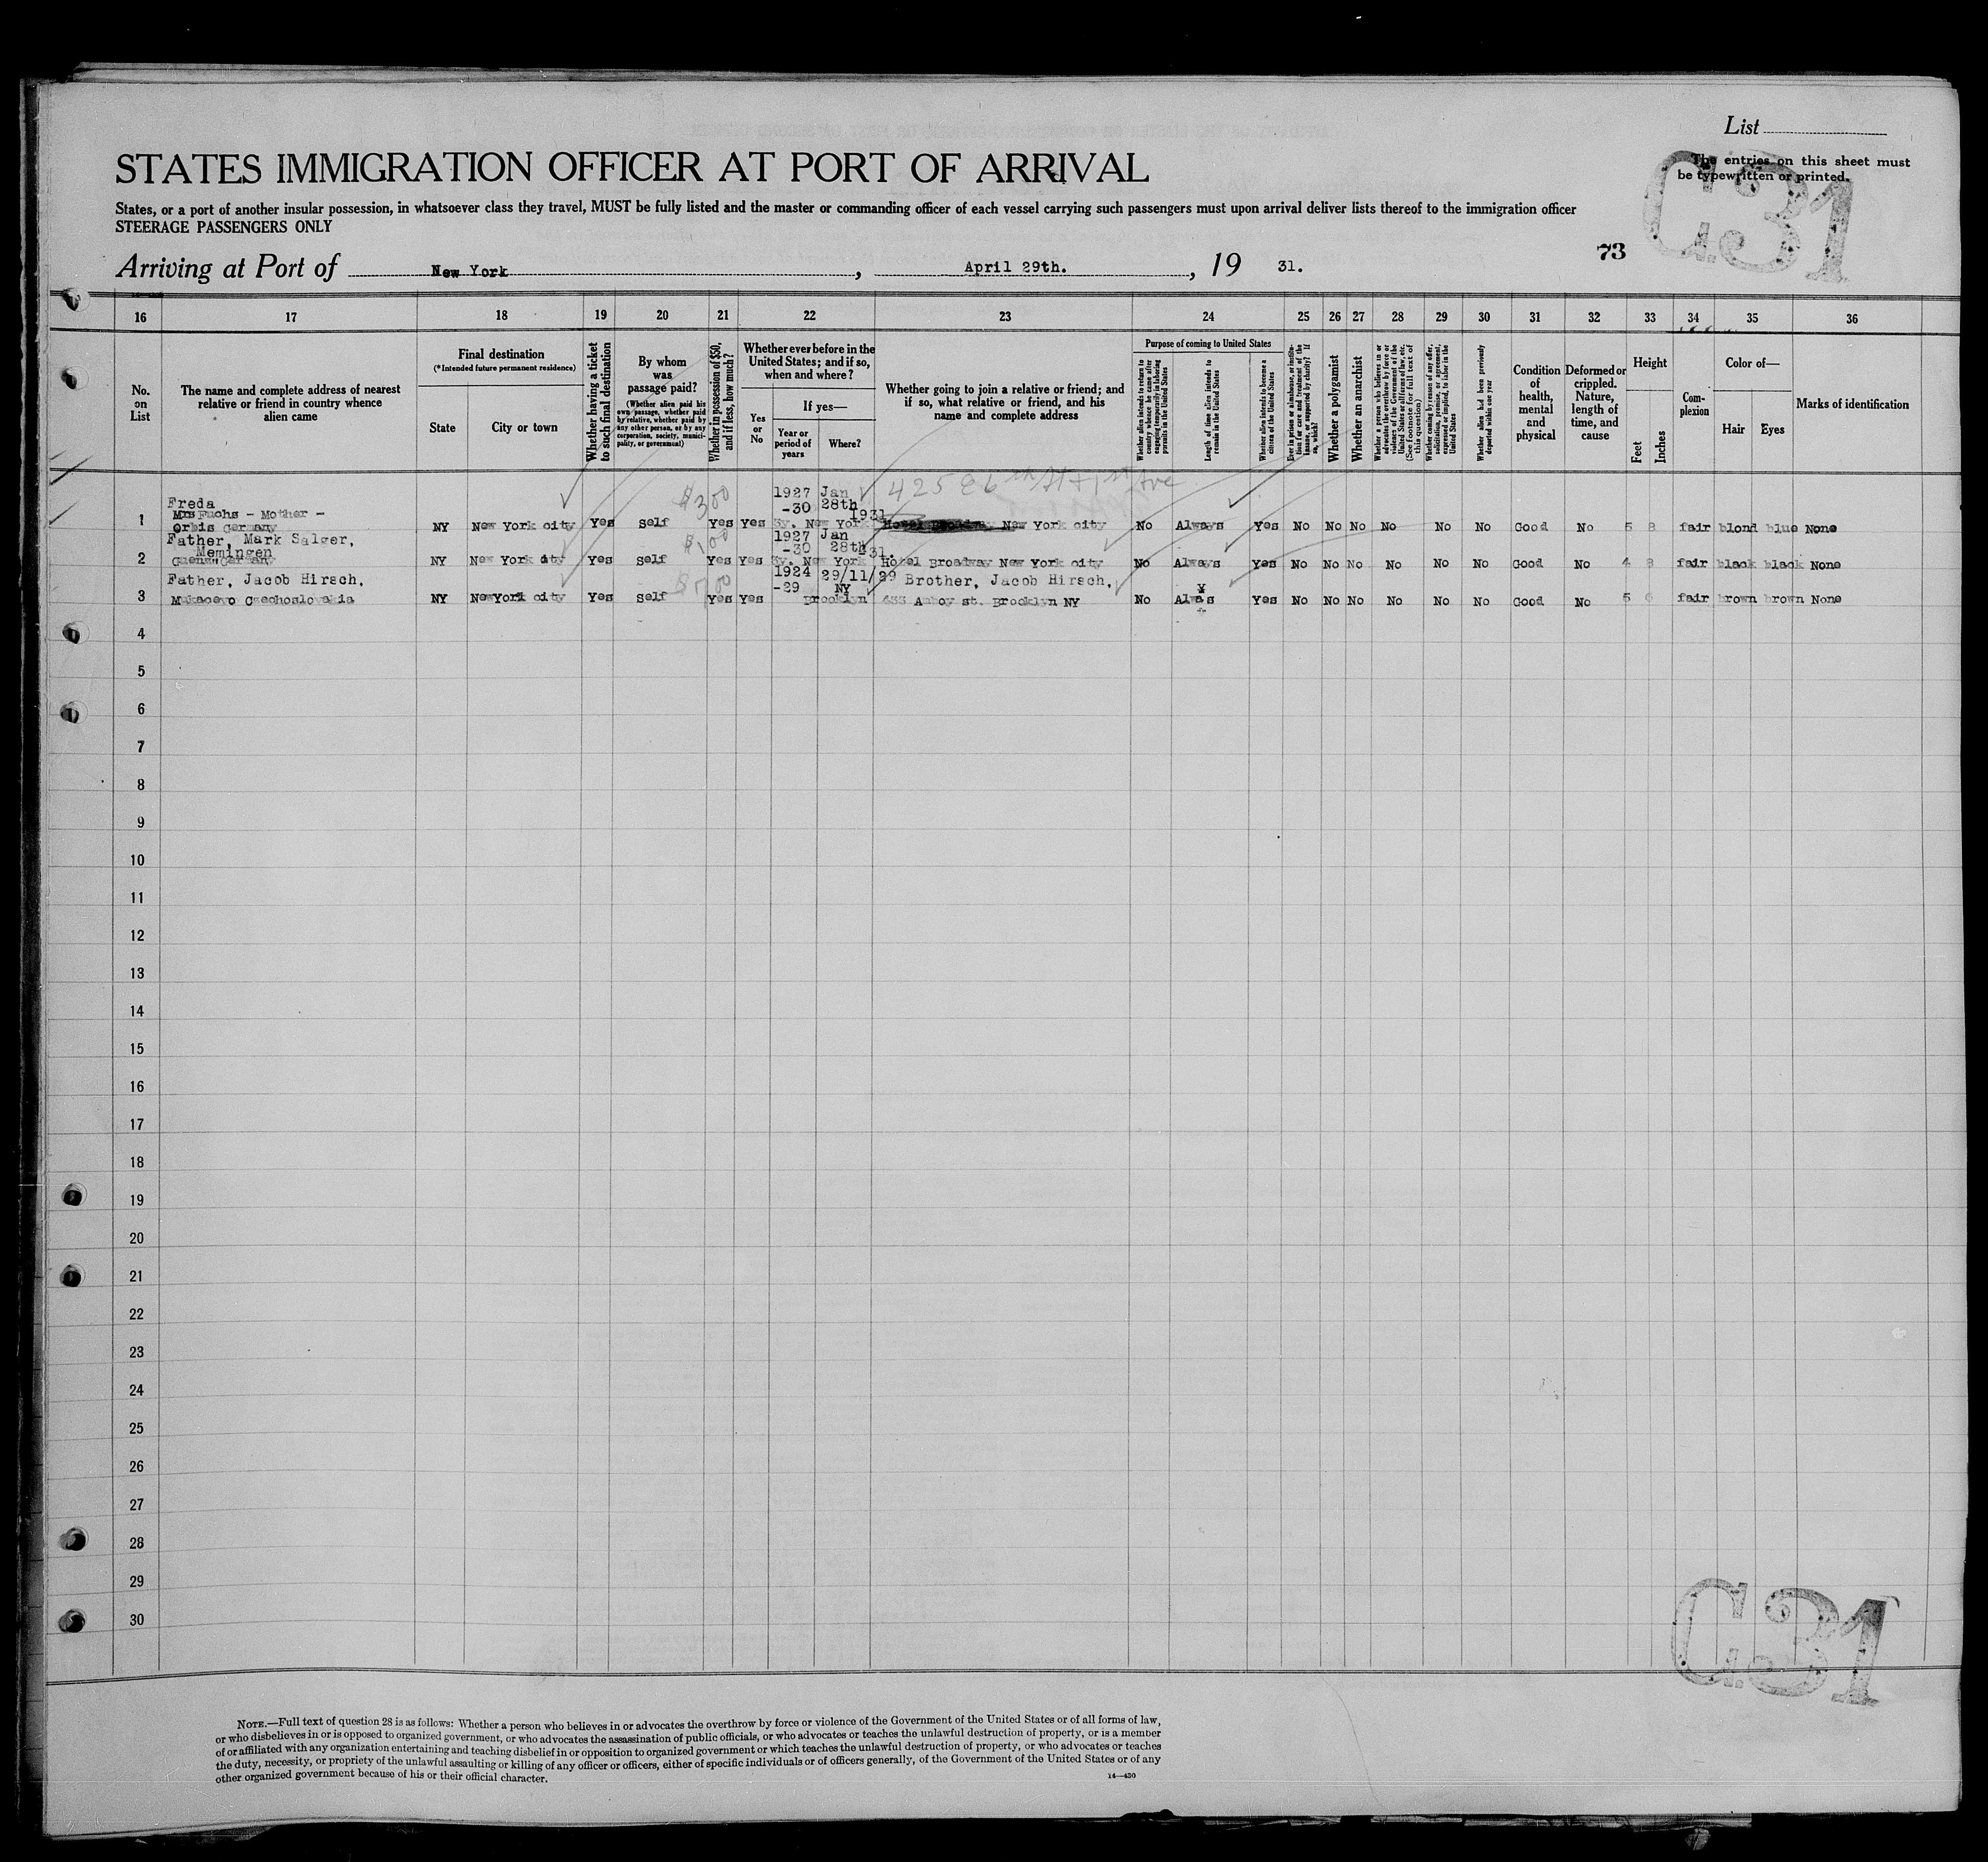 List
The entries on this sheet must
be typewritten or printed.
C.31
STATES IMMIGRATION OFFICER AT PORT OF ARRIVAL
States, or a port of another insular possession, in whatsoever class they travel, MUST be fully listed and the master or commanding officer of each vessel carrying such passengers must upon arrival deliver lists thereof to the immigration officer
STEERAGE PASSENGERS ONLY
73
Arriving at Port of New York, April 29th., 19 31.
16 17 18 19 20 21 22 23 24 25 26 27 28 29 30 31 32 33 34 35 36
No. on List
The name and complete address of nearest relative or friend in country whence alien came
Final destination
(*Intended future permanent residence)
State
City or town
Whether having a ticket to such final destination
By whom was passage paid?
(Whether alien paid his own passage, whether paid by relative, whether paid by any other person, or by any corporation, society, municipality, or government)
Whether in possession of $50, and if less, how much?
Whether ever before in the United States; and if so, when and where?
Yes or No
If yes—
Year or period of years
Where?
Whether going to join a relative or friend; and if so, what relative or friend, and his name and complete address
Purpose of coming to United States
Whether alien intends to return to country whence he came after engaging temporarily in laboring pursuits in the United States
Length of time alien intends to remain in the United States
Whether alien intends to become a citizen of the United States
Ever in prison or almshouse, or institution for care and treatment of the insane, or supported by charity? If so, which?
Whether a polygamist
Whether an anarchist
Whether a person who believes in or advocates the overthrow by force or violence of the Government of the United States or all forms of law, etc. (See footnote for full text of this question)
Whether coming by reason of any offer, solicitation, promise, or agreement, expressed or implied, to labor in the United States
Whether alien had been previously deported within one year
Condition of health, mental and physical
Deformed or crippled. Nature, length of time, and cause
Height
Feet
Inches
Complexion
Color of—
Hair
Eyes
Marks of identification
Freda $300 1927 Jan 425 E 6th St + 1st Ave
Mrs Fuchs - Mother - -30 28th 1931
1 Orbis Germany NY New York city Yes Self Yes Yes 3y. New York New York city No Always Yes No No No No No No Good No 5 8 fair blond blue None
Father, Mark Salger, $100 1927 Jan
Memingen -30 28th 31.
2 Germany NY New York city Yes Self Yes Yes 3y. New York Hotel Broadway New York city No Always Yes No No No No No No Good No 4 8 fair black black None
Father, Jacob Hirsch, 1924 29/11/29 Brother, Jacob Hirsch,
-29 NY
3 Mukacevo Czechoslovakia NY New York city Yes Self Yes Yes Brooklyn 633 Amboy st. Brooklyn NY No Alwas Yes No No No No No No Good No 5 6 fair brown brown None
4
5
6
7
8
9
10
11
12
13
14
15
16
17
18
19
20
21
22
23
24
25
26
27
28
29
30
C.31
NOTE.—Full text of question 28 is as follows: Whether a person who believes in or advocates the overthrow by force or violence of the Government of the United States or of all forms of law,
or who disbelieves in or is opposed to organized government, or who advocates the assassination of public officials, or who advocates or teaches the unlawful destruction of property, or is a member
of or affiliated with any organization entertaining and teaching disbelief in or opposition to organized government or which teaches the unlawful destruction of property, or who advocates or teaches
the duty, necessity, or propriety of the unlawful assaulting or killing of any officer or officers, either of specific individuals or of officers generally, of the Government of the United States or of any
other organized government because of his or their official character.
14—430